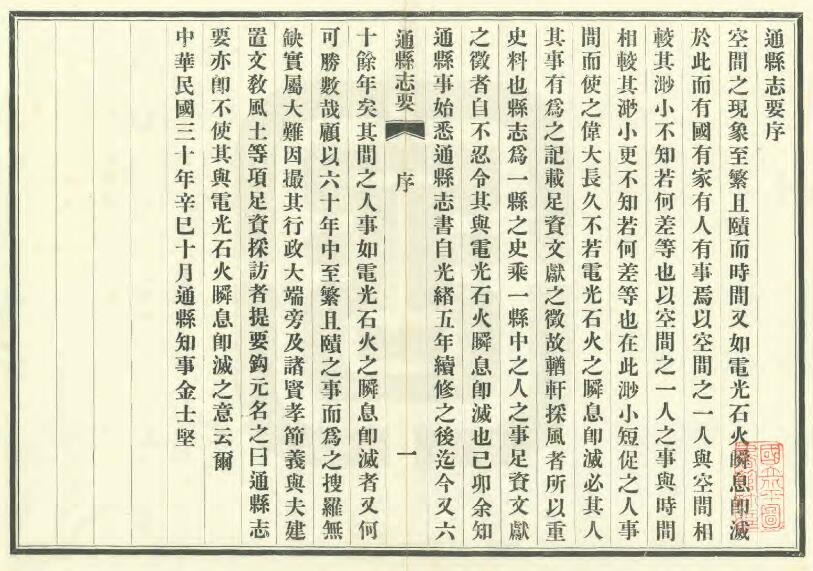 通縣志要序
空間之現象至繁且賾而時間又如電光石火瞬息卽滅
於此而有國有家有人有事焉以空間之一人與空間相
較其渺小不知若何差等也以空間之一人之事與時間
相較其渺小更不知若何差等也在此渺小短促之人事
間而使之偉大長久不若電光石火之瞬息卽滅必其人
其事有爲之記載足資文獻之徵故輶軒採風者所以重
史料也縣志爲一縣之史乘一縣中之人之事足資文獻
之徵者自不忍令其與電光石火瞬息卽滅也己卯余知
通縣事始悉通縣志書自光緒五年續修之後迄今又六
通縣志要
序
一
十餘年矣其間之人事如電光石火之瞬息卽滅者又何
可勝數哉顧以六十年中至繁且賾之事而爲之搜羅無
缺實屬大難因撮其行政大端旁及諸賢孝節義與夫建
置文敎風土等項足資採訪者提要鈎元名之曰通縣志
要亦卽不使其與電光石火瞬息卽滅之意云爾
中華民國三十年辛巳十月通縣知事金士堅